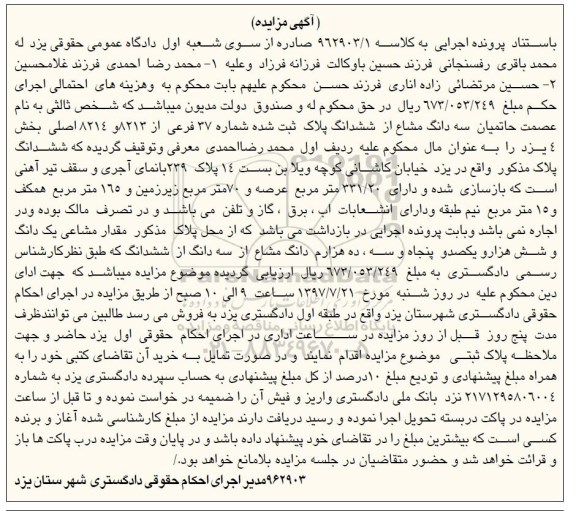 ( آگهی مزایده)
باستناد پرونده اجرایی به کلاسه ۹۶۲۹۰۳/۱ صادره از سوی شعبه اول دادگاه عمومی حقوقی یزد له
محمد باقری رفسنجانی فرزند حسین باوکالت فرزانه فرزاد وعلیه ۱- محمد رضا احمدی فرزند غلامحسین
۲- حسین مرتضائی زاده اناری فرزند حسن محکوم علیهم بابت محکوم به وهزینه های احتمالی اجرای
حکم مبلغ ۶۷۳/۰۵۳/۲۴۹ ریال در حق محکوم له و صندوق دولت مدیون میباشد که شخص ثالثی به نام
عصمت حاتمیان سه دانگ مشاع از ششدانگ پلاک ثبت شده شماره ۳۷ فرعی از ۸۲۱۳و ۸۲۱۴ اصلی بخش
۴ یزد را به عنوان مال محکوم علیه ردیف اول محمد رضااحمدی معرفی وتوقیف گردیده که ششدانگ
پلاک مذکور واقع در یزد خیابان کاشانی کوچه ویلا بن بست ۱۴ پلاک ۲۳۹بانمای آجری و سقف تیر آهنی
است که بازسازی شده و دارای ۳۳۱/۲۰ متر مربع عرصه و ۷۰متر مربع زیرزمین و ۱۶۵ متر مربع همکف
و۱۵ متر مربع نیم طبقه ودارای انشعابات اب ، برق ، گاز و تلفن می باشد و در تصرف مالک بوده ودر
اجاره نمی باشد وبابت پرونده اجرایی در بازداشت می باشد که از محل پلاک مذکور مقدار مشاعی یک دانگ
و شش هزارو یکصدو پنجاه و سه ، ده هزارم دانگ مشاع از سه دانگ از ششدانگ که طبق نظرکارشناس
رسمی دادگستری به مبلغ ۶۷۳/۰۵۳/۲۴۹ ریال ارزیابی گردیده موضوع مزایده میباشد که جهت ادای
دین محکوم علیه در روز شنبه مورخ ۱۳۹۷/۷/۲۱ ساعت ۹ الی ۱۰ صبح از طریق مزایده در اجرای احکام
حقوقی دادگستری شهرستان یزد واقع در طبقه اول دادگستری یزد به فروش می رسد طالبین می توانندظرف
مدت پنج روز قبل از روز مزایده در ساعت اداری در اجرای احکام حقوقی اول یزد حاضر و جهت
ملاحظه پلاک ثبتی موضوع مزایده اقدام نمایند و در صورت تمایل به خرید آن تقاضای کتبی خود را به
همراه مبلغ پیشنهادی و تودیع مبلغ ۱۰درصد از کل مبلغ پیشنهادی به حساب سپرده دادگستری یزد به شماره
۲۱۷۱۲۹۵۸۰۶۰۰۴ نزد بانک ملی دادگستری واریز و فیش آن را ضمیمه در خواست نموده و تا قبل از ساعت
مزایده در پاکت دربسته تحویل اجرا نموده و رسید دریافت دارند مزایده از مبلغ کارشناسی شده آغاز و برنده
کسی است که بیشترین مبلغ را در تقاضای خود پیشنهاد داده باشد و در پایان وقت مزایده درب پاکت ها باز
و قرائت خواهد شد و حضور متقاضیان در جلسه مزایده بلامانع خواهد بود./
۹۶۲۹۰۳مدیر اجرای احکام حقوقی دادگستری شهرستان یزد